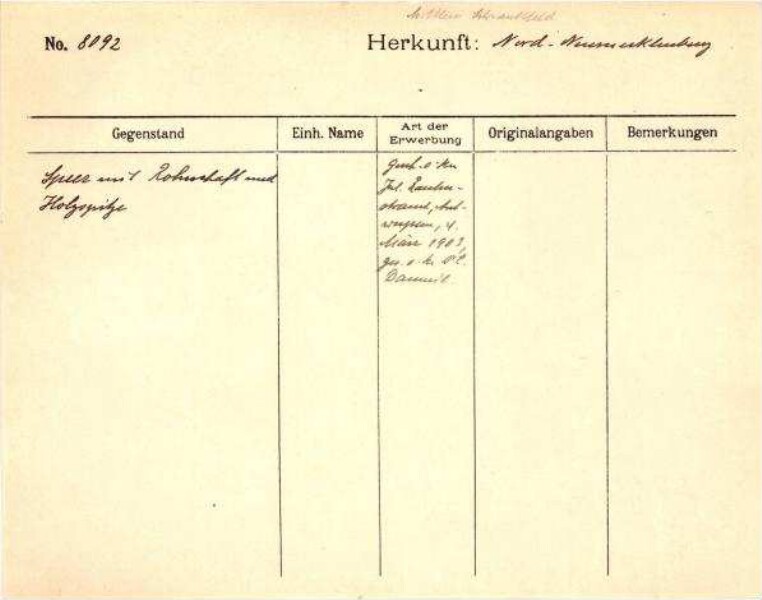 Mittlere Schrankfeld
No. 8092
Herkunft: Nord-Neumecklenburg
Gegenstand
Einh. Name
Art der Erwerbung
Originalangaben
Bemerkungen
Speer mit Rohrschaft und
Holzspitze
Gesch. v. Hrn
Jul.
Ant-
werpen, 4.
März 1903,
ges. v.